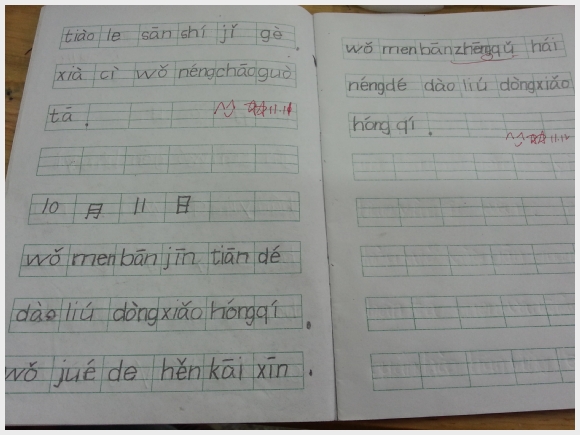 tiào le sān shí jǐ gè
xià cì wǒ néng chāo guò
tā .
10 月 11 日
wǒ men bān jīn tiān dé
dào liú dòng xiǎo hóng qí .
wǒ jué de hěn kāi xīn .
wǒ men bān zhēng qǔ hái
néng dé dào liú dòng xiǎo
hóng qí .